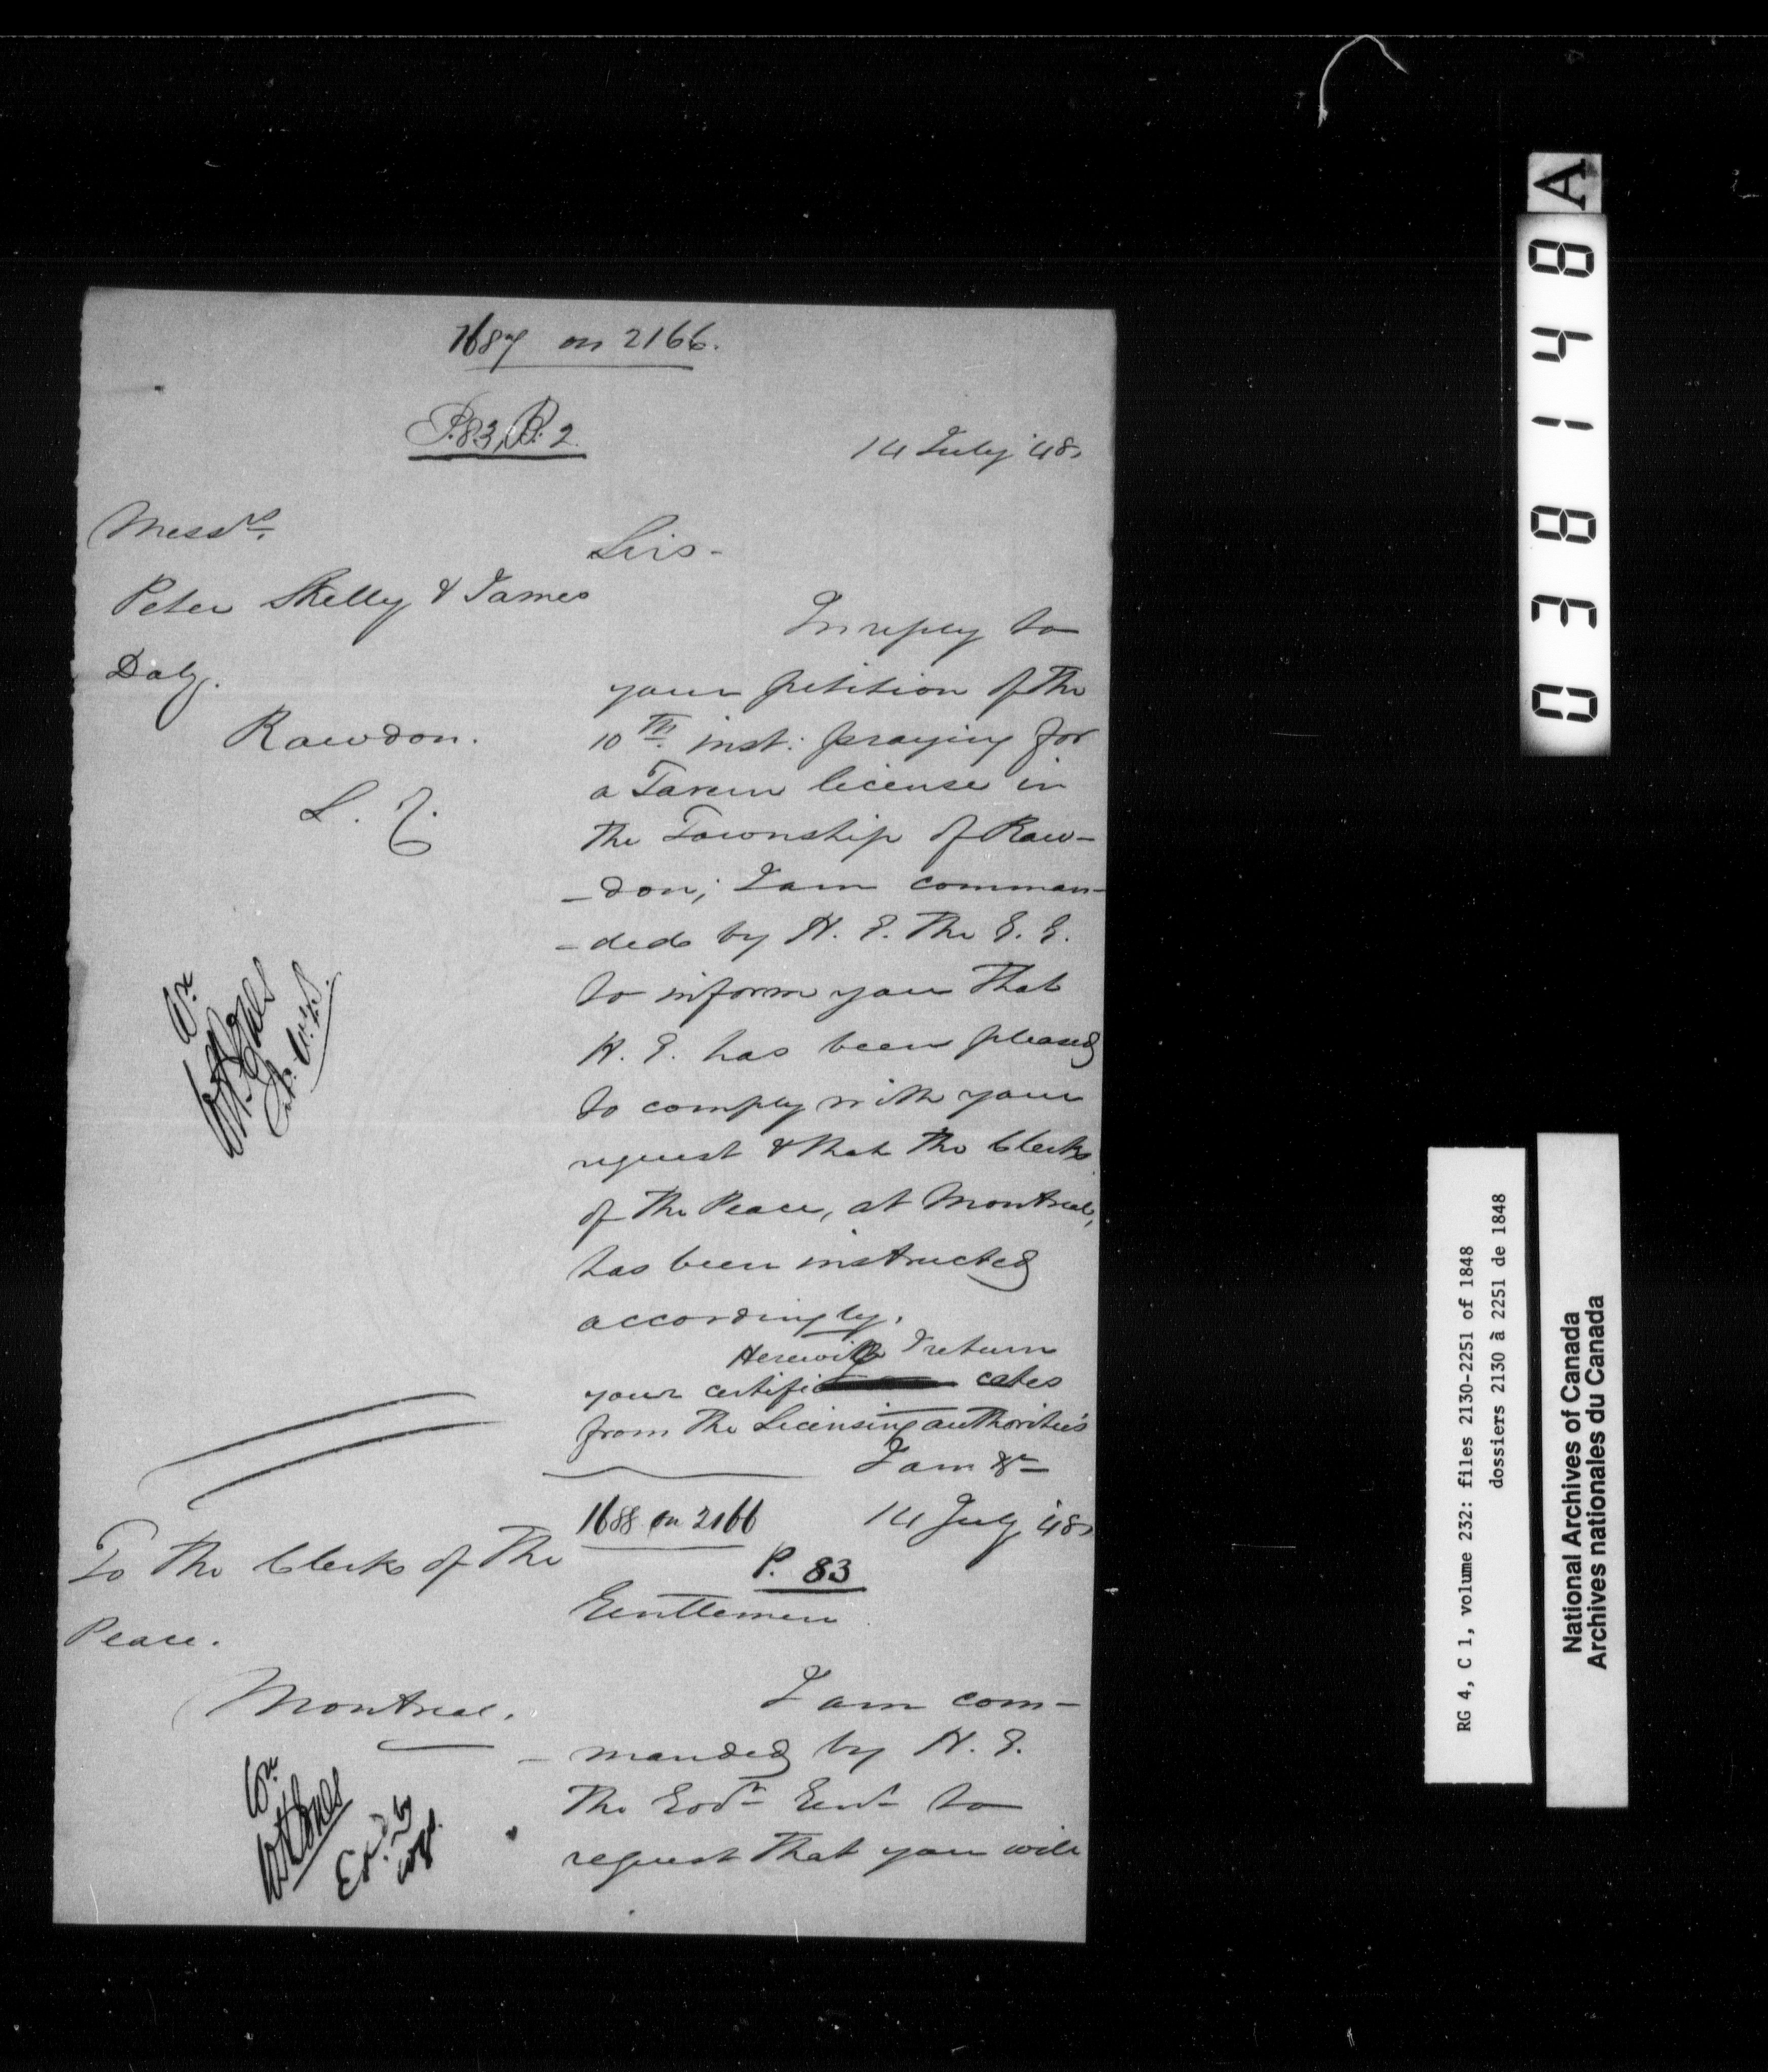 1687 on 2166.
P. 83, R. 2
14 July '48.
Messrs.
Peter Skelly & James
Daly.
Rawdon.
L. C.
Sirs-
In reply to
your petition of the
10th inst: praying for
a Tavern license in
the Township of Raw-
-don; I am comman-
-ded by H. E. the G. G.
to inform you that
H. E. has been pleased
to comply with your
request & that the Clerks
of the Peace, at Montreal,
has been instructed
accordingly.
Herewith I return
your certifi cates
from the Licensing authorities
I am &c
1688 on 2166
14 July '48.
P. 83
To the Clerks of the
Peace.
Montreal.
Gentlemen
I am com-
-manded by H. E.
the Govr Genl to
request that you will
Ex. by
A
038148
RG 4, C 1, volume 232: files 2130-2251 of 1848
dossiers 2130 à 2251 de 1848
National Archives of Canada
Archives nationales du Canada